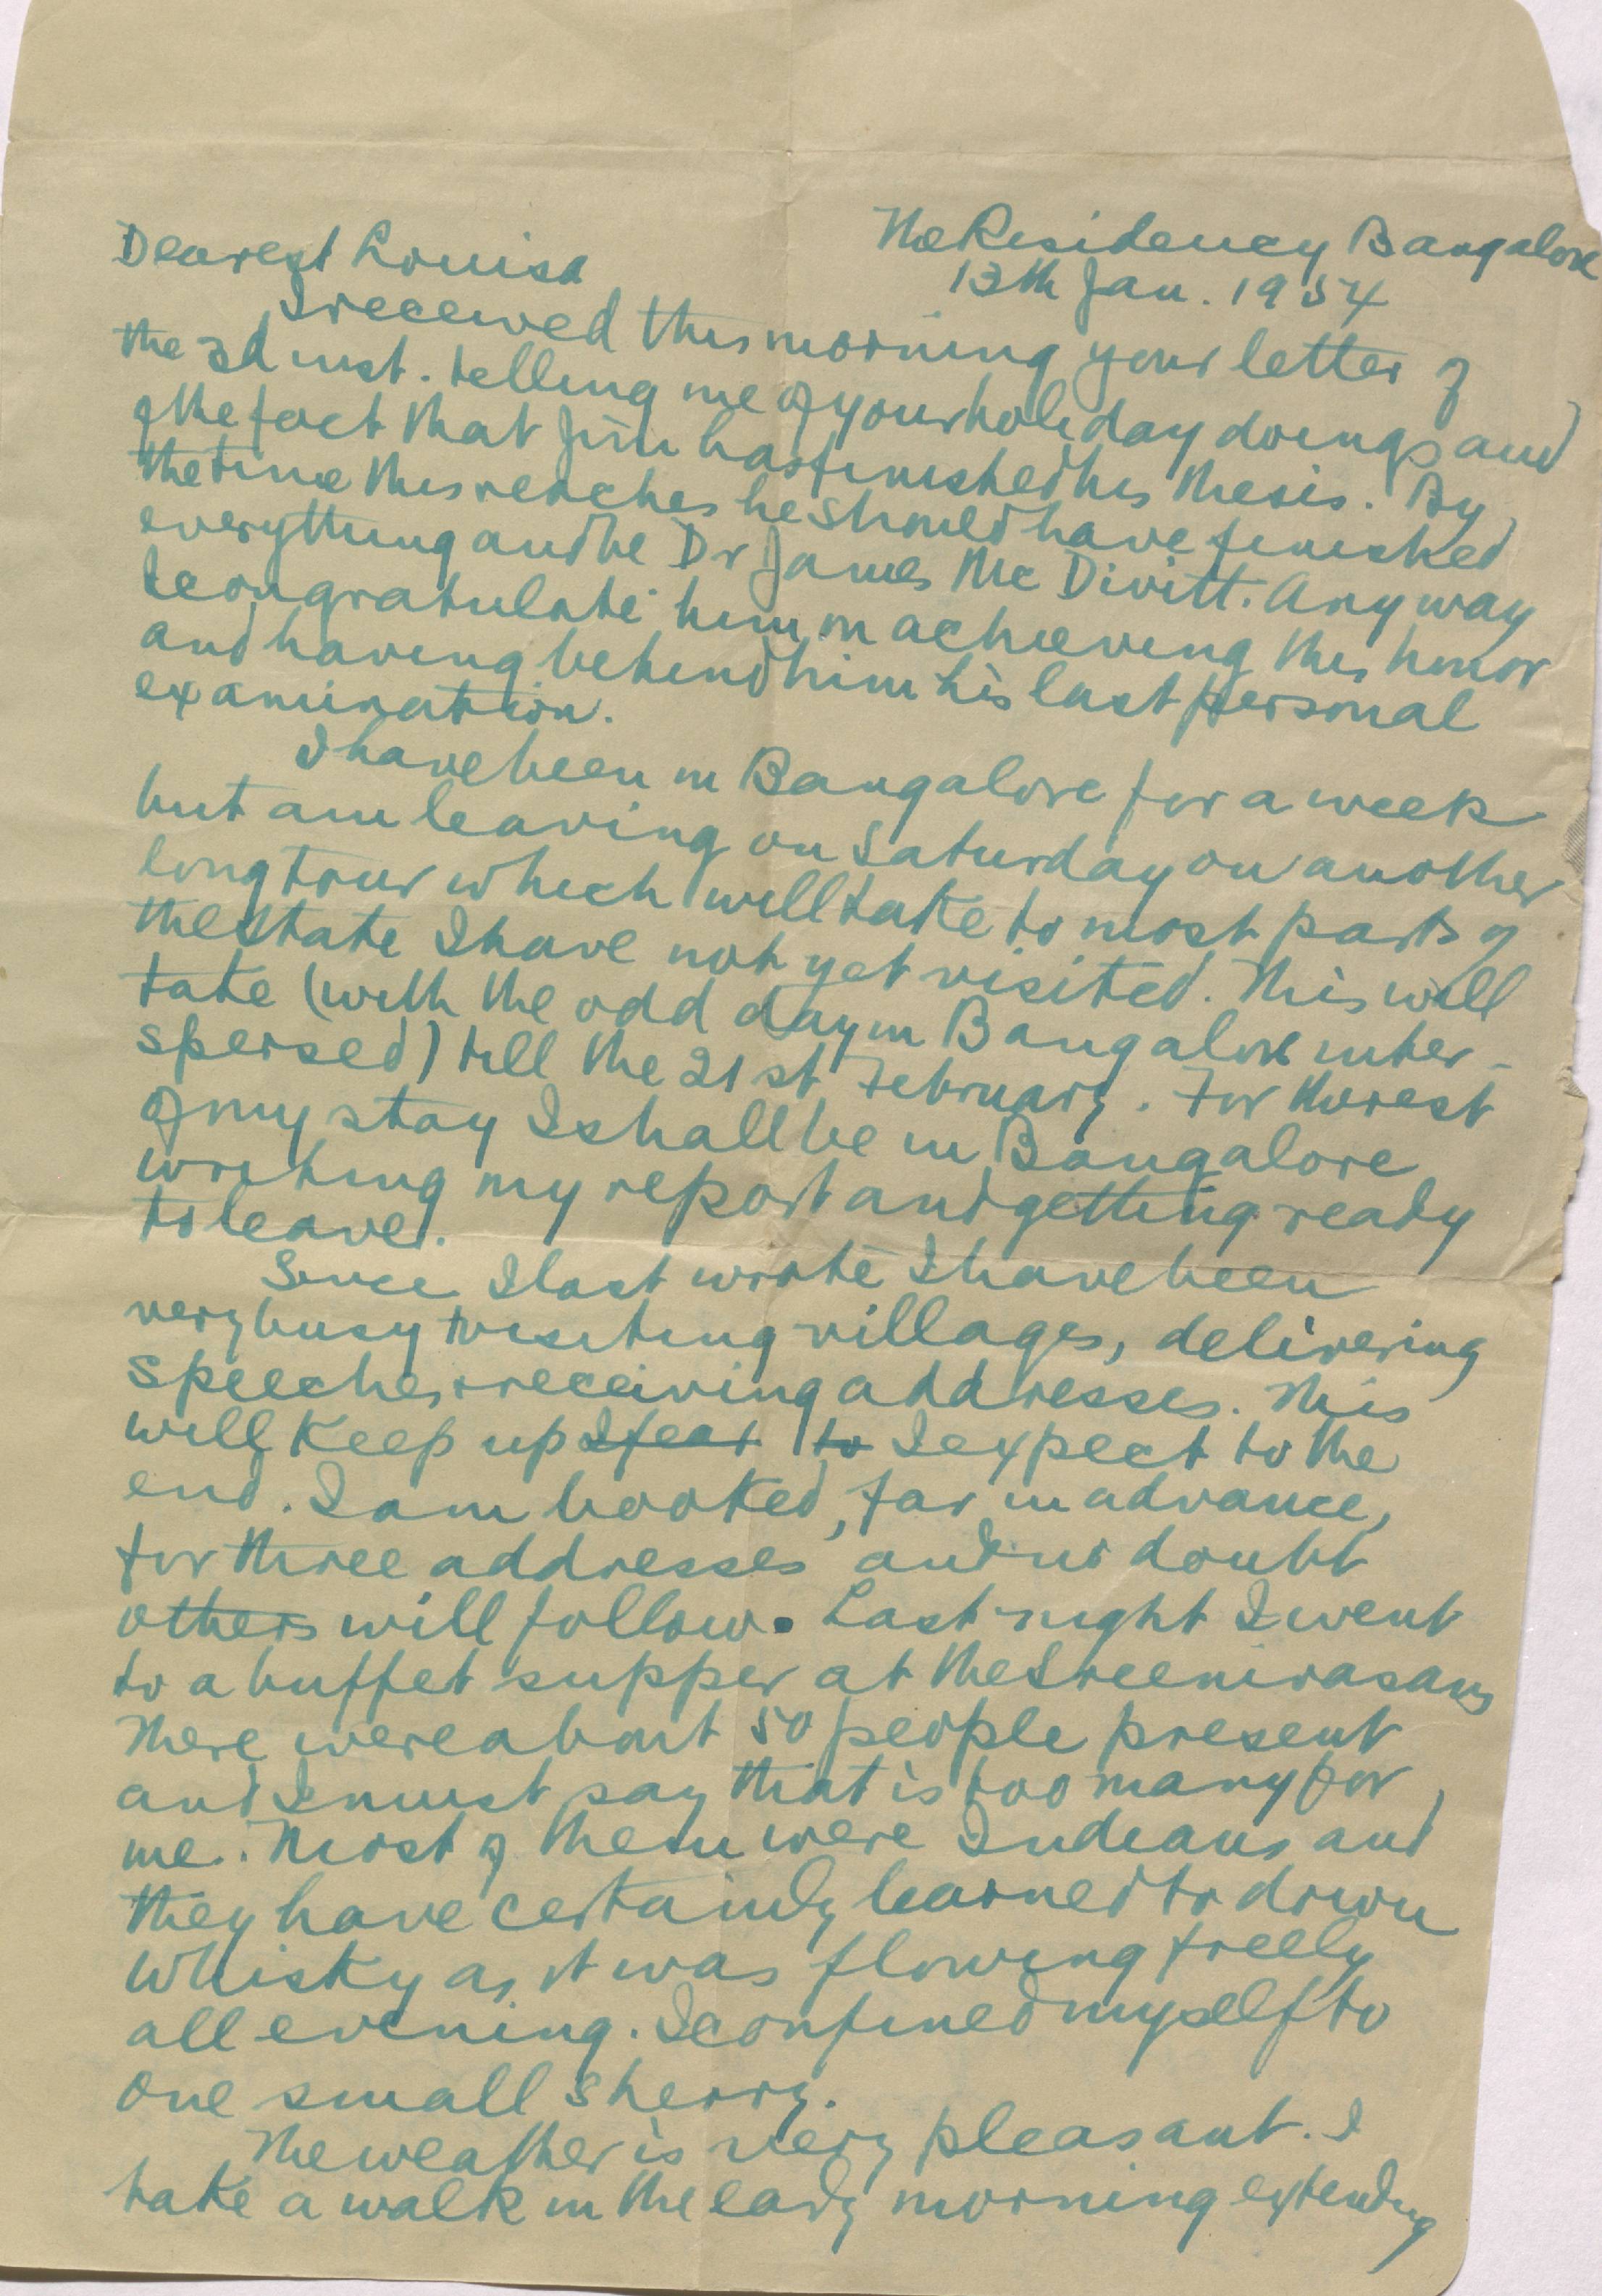 The Residency Bangalore
13th Jan. 1954
Dearest Louisa
I received this morning your letter of
the 3d inst. telling me of your holiday doings and
of the fact that Jim has finished his thesis. By
the time this reaches he should have finished
everything and be Dr James Mc Divitt. Any way
I congratulate him on achieving this honor
and having behind him his last personal
examination.
I have been in Bangalore for a week
but am leaving on Saturday on another
long tour which will take to most parts of
the State I have not yet visited. This will
take (with the odd day in Bangalore inter-
spersed) till the 21st February. For the rest
of my stay I shall be in Bangalore
writing my report and getting ready
to leave.
Since I last wrote I have been
very busy visiting villages, delivering
speeches & receiving addresses. This
will keep up I fear to I expect to the
end. I am booked, far in advance,
for three addresses and no doubt
others will follow. Last night I went
to a buffet supper at the Sreenivasans
There were about 50 people present
and I must say that is too many for
me. Most of them were Indians and
they have certainly learned to down
Whisky as it was flowing freely
all evening. I confined myself to
one small sherry.
The weather is very pleasant. I
take a walk in the early morning extending